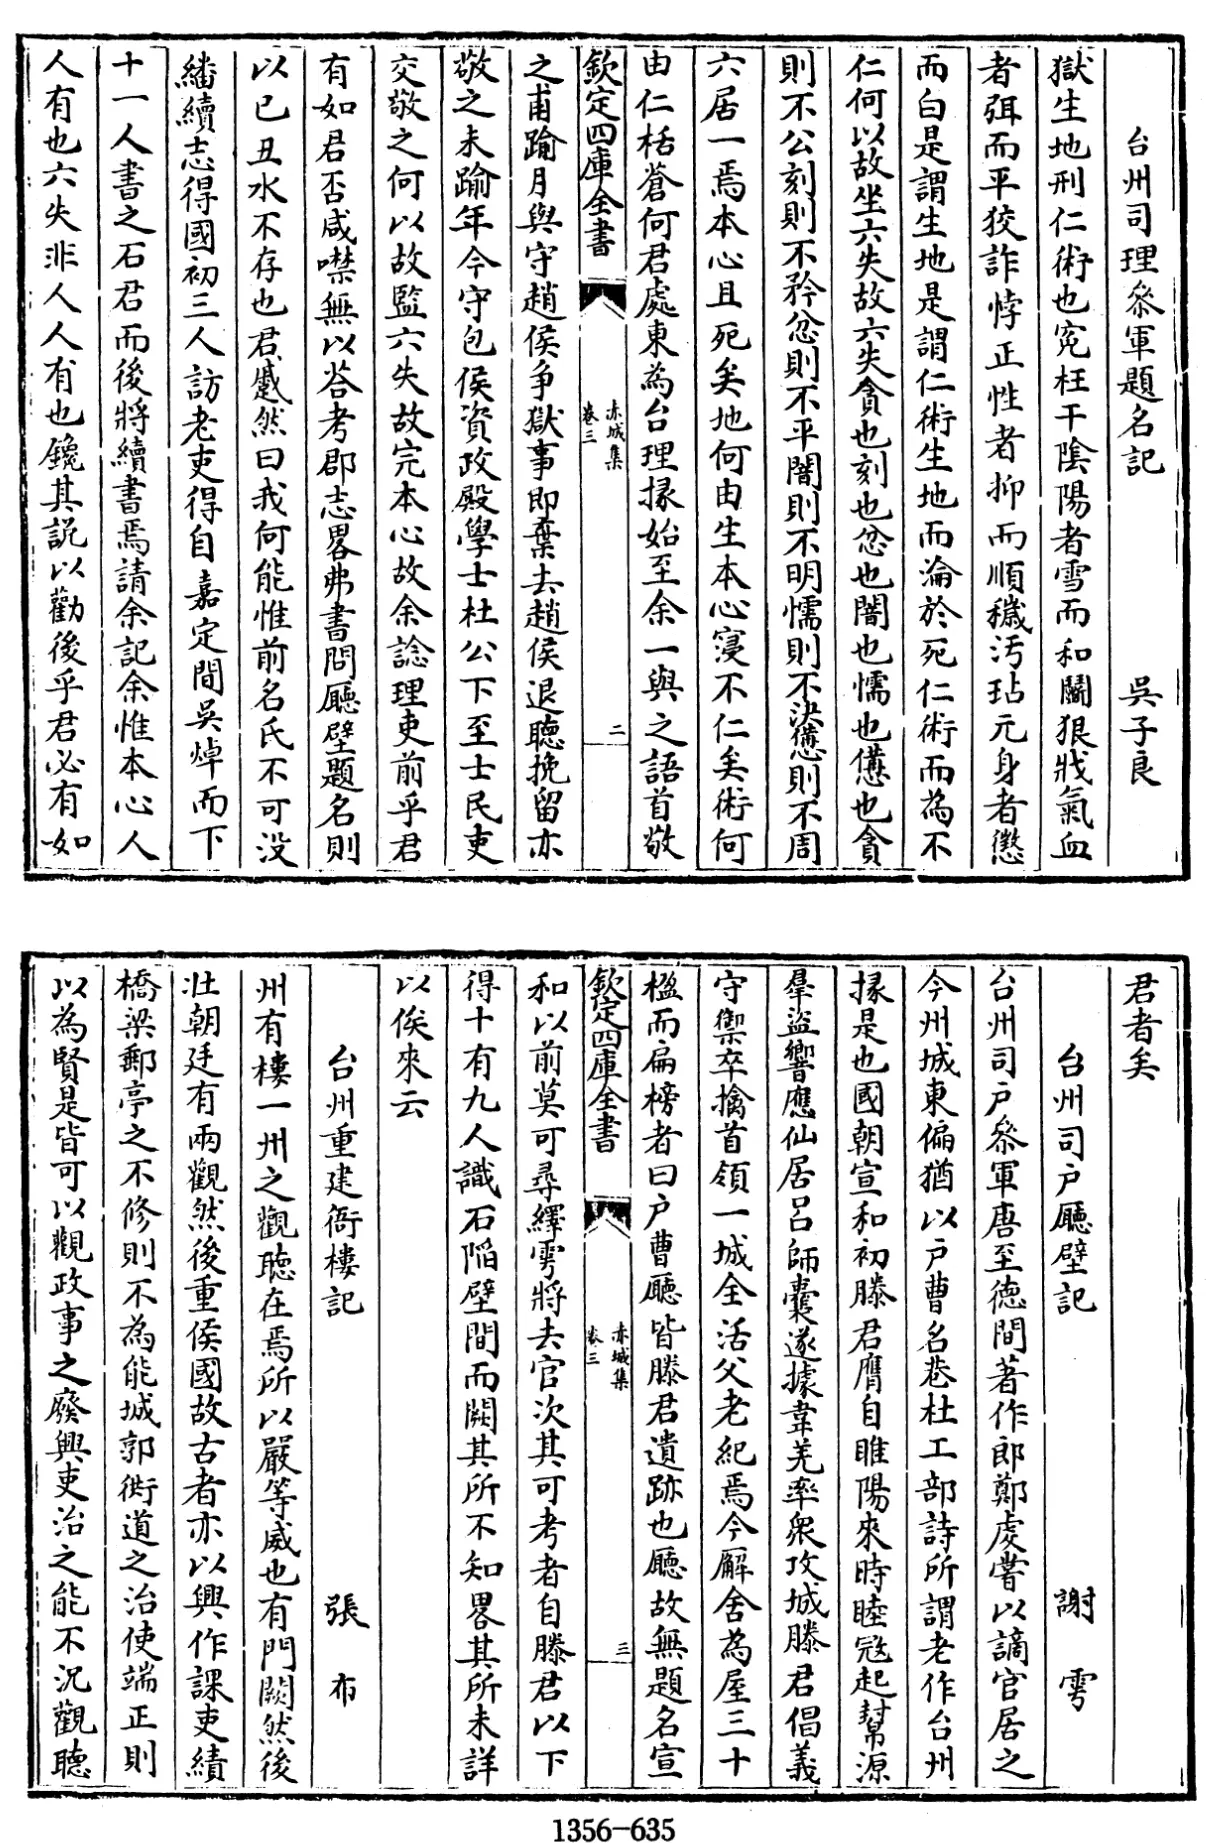 台州司理叅軍題名記　吳子良
獄生地刑仁術也寃枉干隂陽者雪而和鬭狠戕氣血
者弭而平狡詐悖正性者抑而順穢汚玷元身者懲
而白是謂生地是謂仁術生地而淪於死仁術而為不
仁何以故坐六失故六失貪也刻也忿也闇也懦也㒋也貪
則不公刻則不矜忿則不平闇則不明懦則不決㒋則不周
六居一焉本心且死矣地何由生本心寖不仁矣術何
由仁栝蒼何君處東為台理掾始至余一與之語首敬
欽定四庫全書
赤城集
卷三
二
之甫踰月與守趙侯争獄事即棄去趙侯退聽挽留亦
敬之未踰年今守包侯資政殿學士杜公下至士民吏
交敬之何以故監六失故完本心故余諗理吏前乎君
有如君否咸噤無以荅考郡志畧弗書問廳壁題名則
以已丑水不存也君慼然曰我何能惟前名氏不可没
繙續志得國初三人訪老吏得自嘉定間吳焯而下
十一人書之石君而後將續書焉請余記余惟本心人
人有也六失非人人有也鑱其説以勸後乎君必有如
君者矣
台州司户廳壁記　謝雩
台州司户叅軍唐至德間著作郎鄭虔嘗以謫官居之
今州城東偏猶以户曹名巷杜工部詩所謂老作台州
掾是也國朝宣和初滕君膺自睢陽來時睦冦起幫源
羣盜響應仙居吕師囊遂據韋羌率衆攻城滕君倡義
守禦卒擒首領一城全活父老紀焉今廨舍為屋三十
楹而扁榜者曰户曹廳皆滕君遺跡也廳故無題名宣
欽定四庫全書
赤城集
卷三
三
和以前莫可尋繹雩將去官次其可考者自滕君以下
得十有九人識石陷壁間而闕其所不知畧其所未詳
以俟來云
台州重建衙樓記　張布
州有樓一州之觀聽在焉所以嚴等威也有門闕然後
壯朝廷有兩觀然後重侯國故古者亦以興作課吏績
橋梁郵亭之不修則不為能城郭街道之治使端正則
以為賢是皆可以觀政事之廢興吏治之能不況觀聽
1356-635